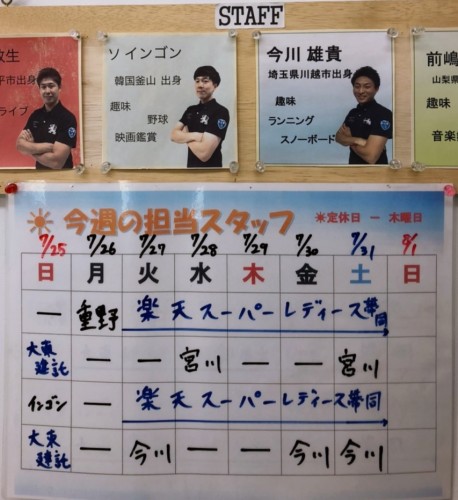 STAFF
生
平市出身
ライブ
ソ インゴン
韓国釜山 出身
趣味
野球
映画鑑賞
今川 雄貴
埼玉県川越市出身
趣味
ランニング
スノーボード
前嶋
山梨県
趣味
音楽
今週の担当スタッフ
※定休日 ー 木曜日
7/25 7/26 7/27 7/28 7/29 7/30 7/31 8/1
日 月 火 水 木 金 土 日
ー 重野 楽天スーパーレディース帯同
大東建託 ー ー 宮川 ー ー 宮川
インゴン ー 楽天スーパーレディース帯同
大東建託 ー 今川 ー ー 今川 今川